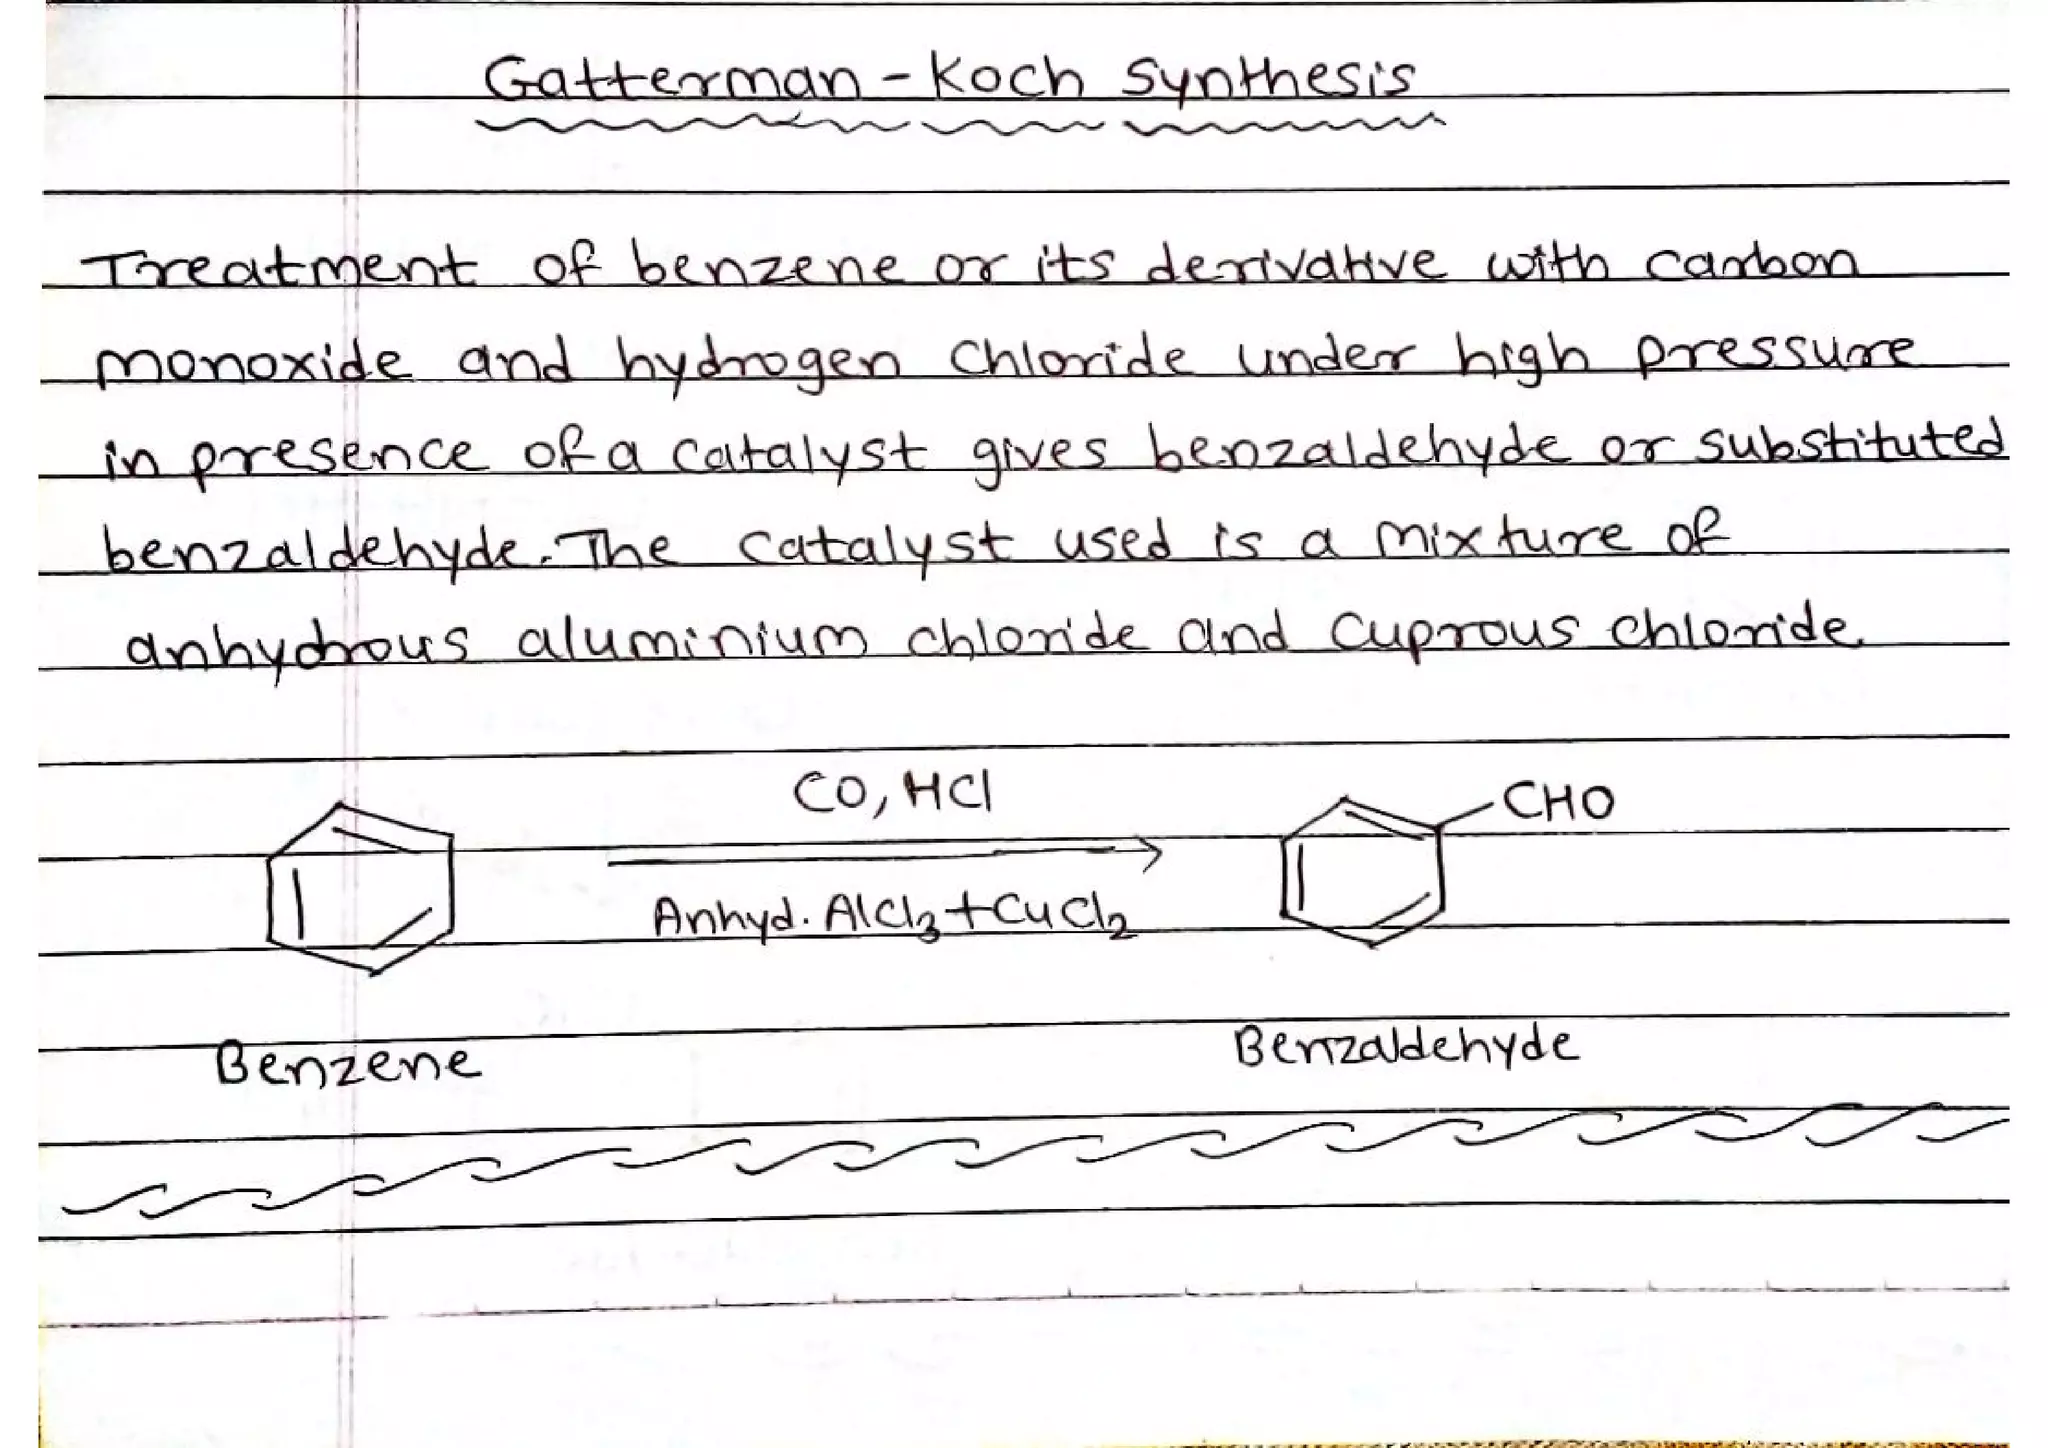 Gatterman - Koch Synthesis
Treatment of benzene or its derivative with carbon
monoxide and hydrogen chloride under high pressure
in presence of a catalyst gives benzaldehyde or substituted
benzaldehyde. The catalyst used is a mixture of
anhydrous aluminium chloride and cuprous chloride.
CO, HCl
CHO
Anhyd. AlCl3 + CuCl2
Benzene
Benzaldehyde